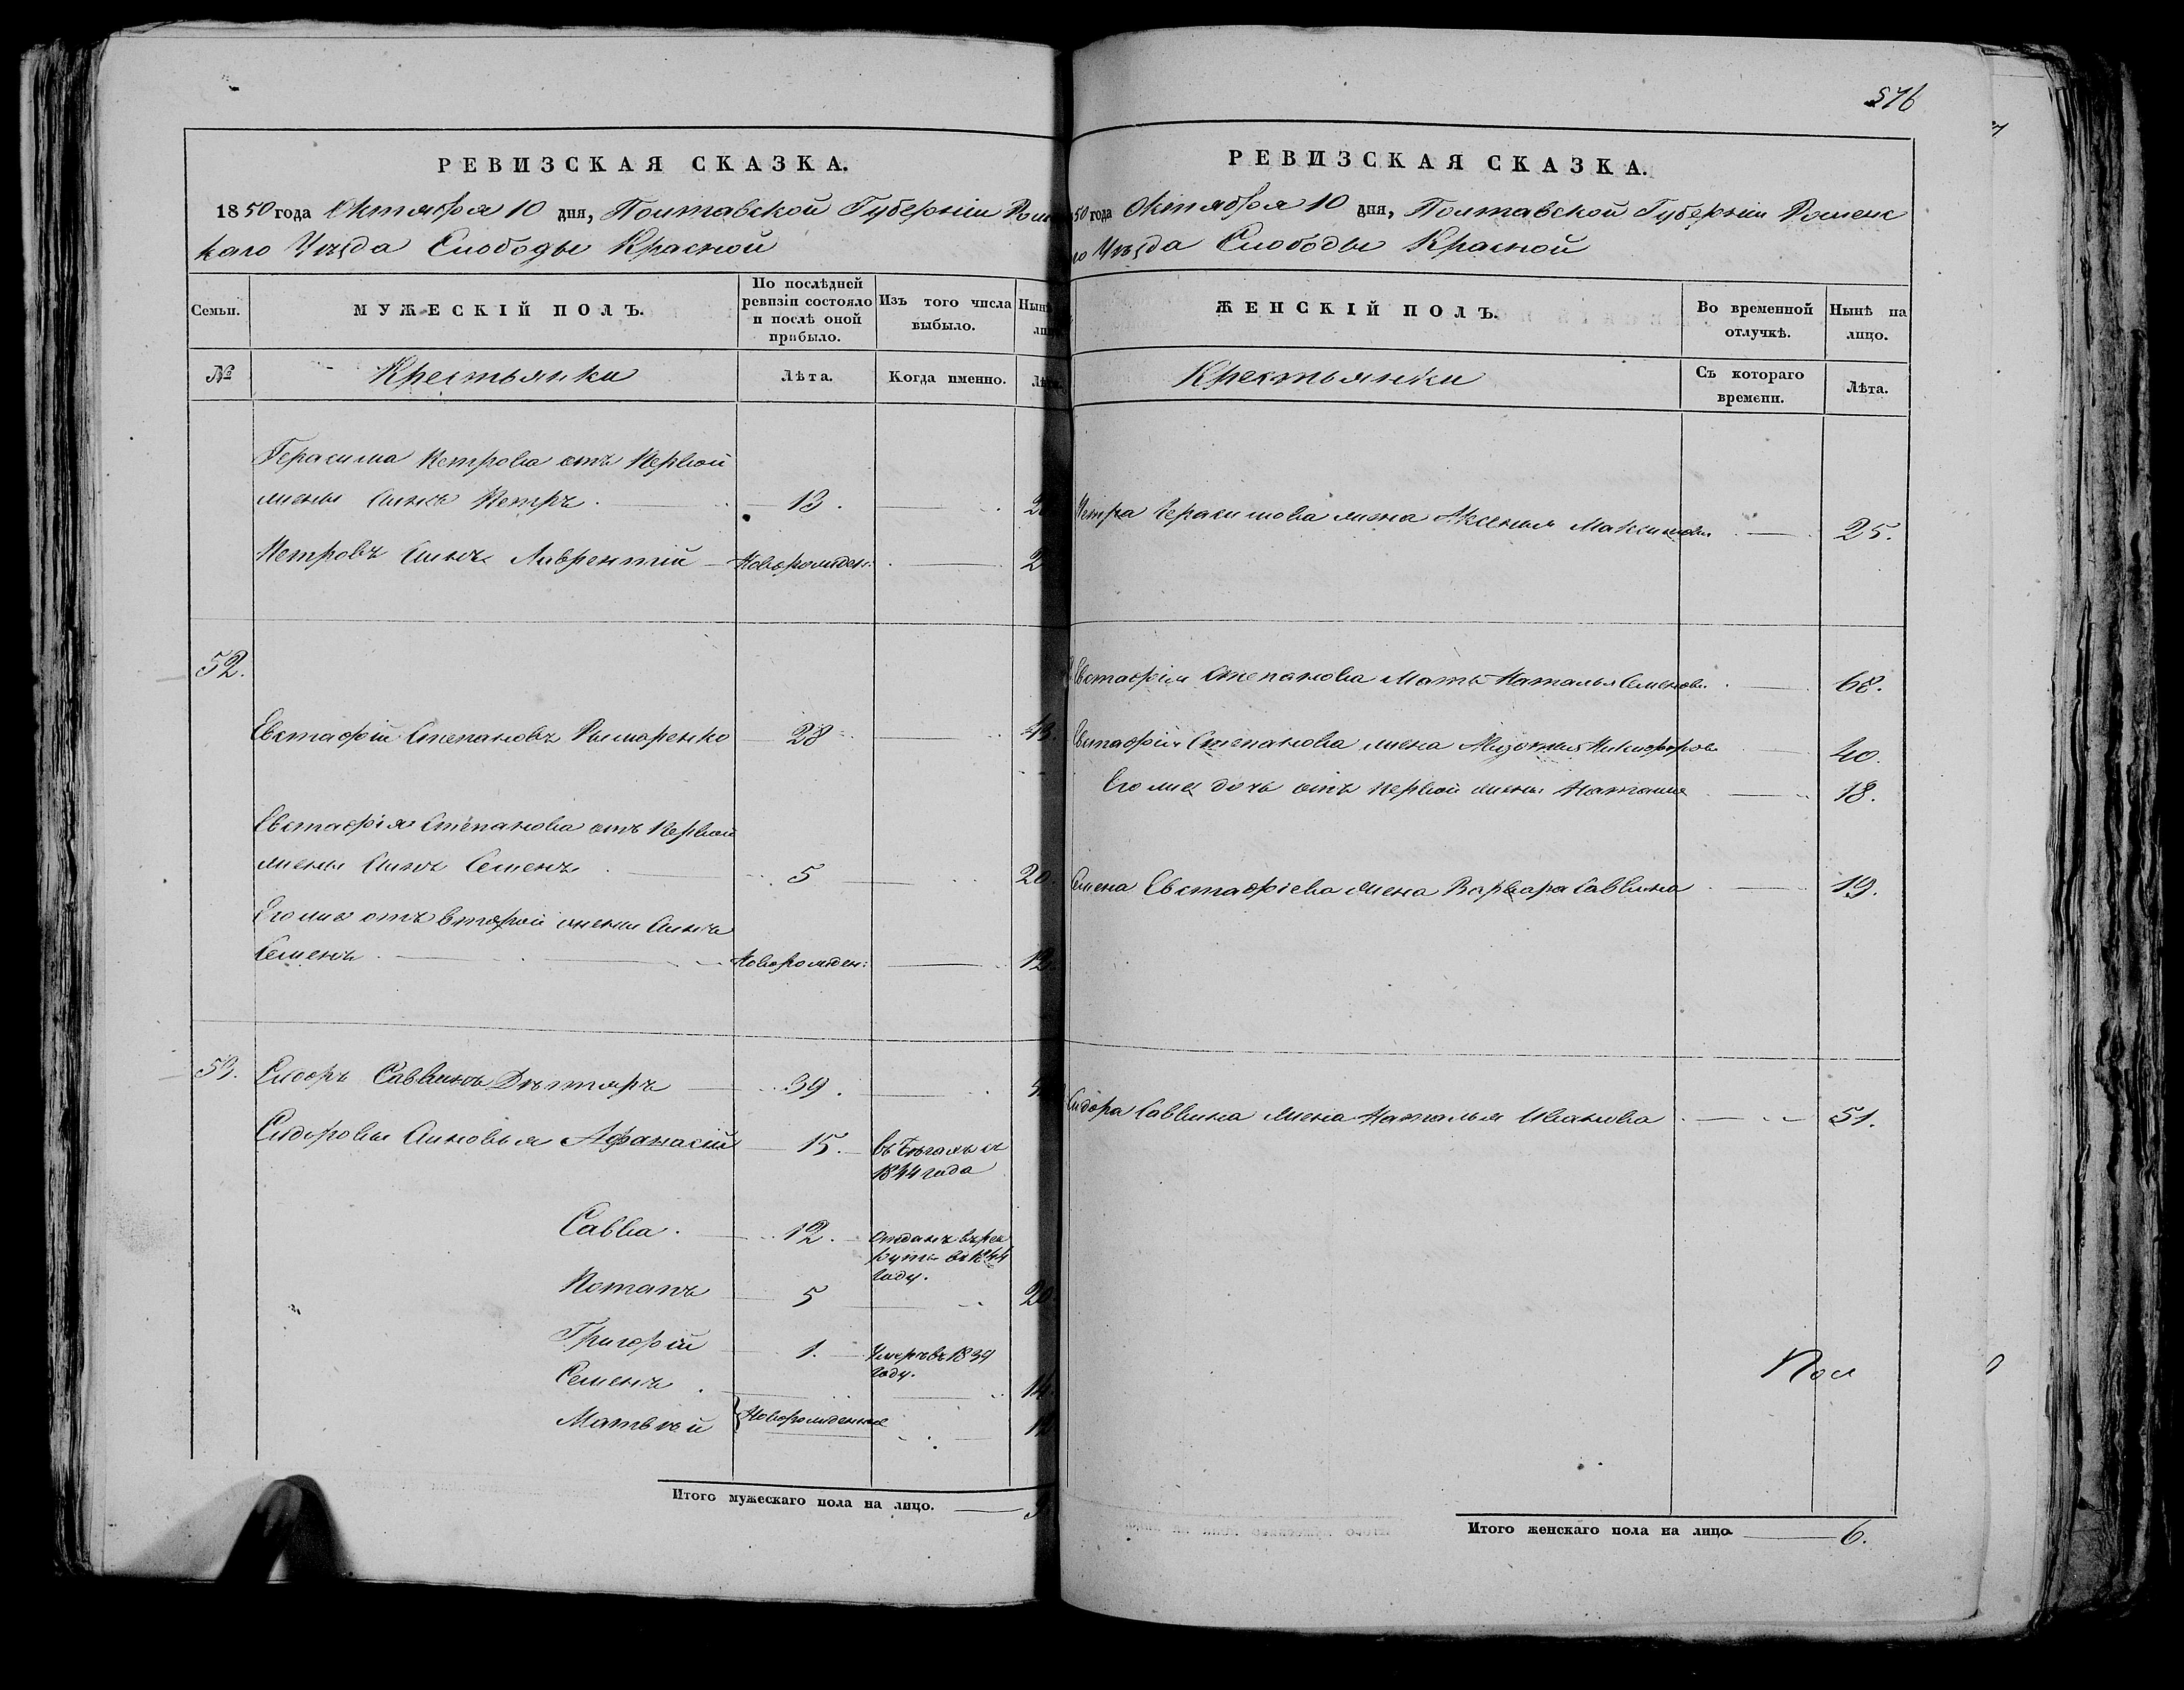 РЕВИЗСКАЯ СКАЗКА.
1850 года Октября 10 дня, Полтавской Губерніи Ромен
каго Уѣзда Слободы Красной
Семьи.
МУЖЕСКІЙ ПОЛЪ.
По послѣдней
ревизіи состояло
и послѣ оной
прибыло.
Изъ того числа
выбыло.
Нынѣ
ли
№
Крестьянки
Лѣта.
Когда именно.
Лѣта
Герасима Петрова отъ первой
жены сынъ Петръ. 13.
Петровъ сынъ Лаврентій Новорожден: 2
52.
Евстафій Степановъ Римаренко 28 43.
Евстафія Степанова отъ первой
жены сынъ Семенъ 5 20.
Его же отъ второй жены сынъ
Семенъ Новорожден: 12.
53. Сидоръ Саввинъ Дѣтяръ 39.
Сидоровы сыновья Афанасій 15. въ бѣгахъ съ
1844 года
Савва. 12. отданъ въ рек
руты въ 1844
году.
Потапъ 5 20.
Григорій 1. Умеръ въ 1839
году.
Семенъ 14.
Матвѣй Новорожденные
Итого мужескаго пола на лицо.
576
РЕВИЗСКАЯ СКАЗКА.
50 года Октября 10 дня, Полтавской Губерніи Роменс
го Уѣзда Слободы Красной
ЖЕНСКІЙ ПОЛЪ.
Во временной
отлучкѣ.
Нынѣ на
лицо.
Крестьянки
Съ котораго
времени.
Лѣта.
Петра Герасимова жена Аксенья Максимова 25.
Евстафія Степанова мать Наталья Семенова 68.
Евстафія Степанова жена Никифоров 40.
Его же дочь отъ первой жены 18.
Семена Евстафіева жена Варвара Саввина 19.
Сидора Саввина жена Наталья Иванова 51.
Пол
Итого женскаго пола на лицо 6.